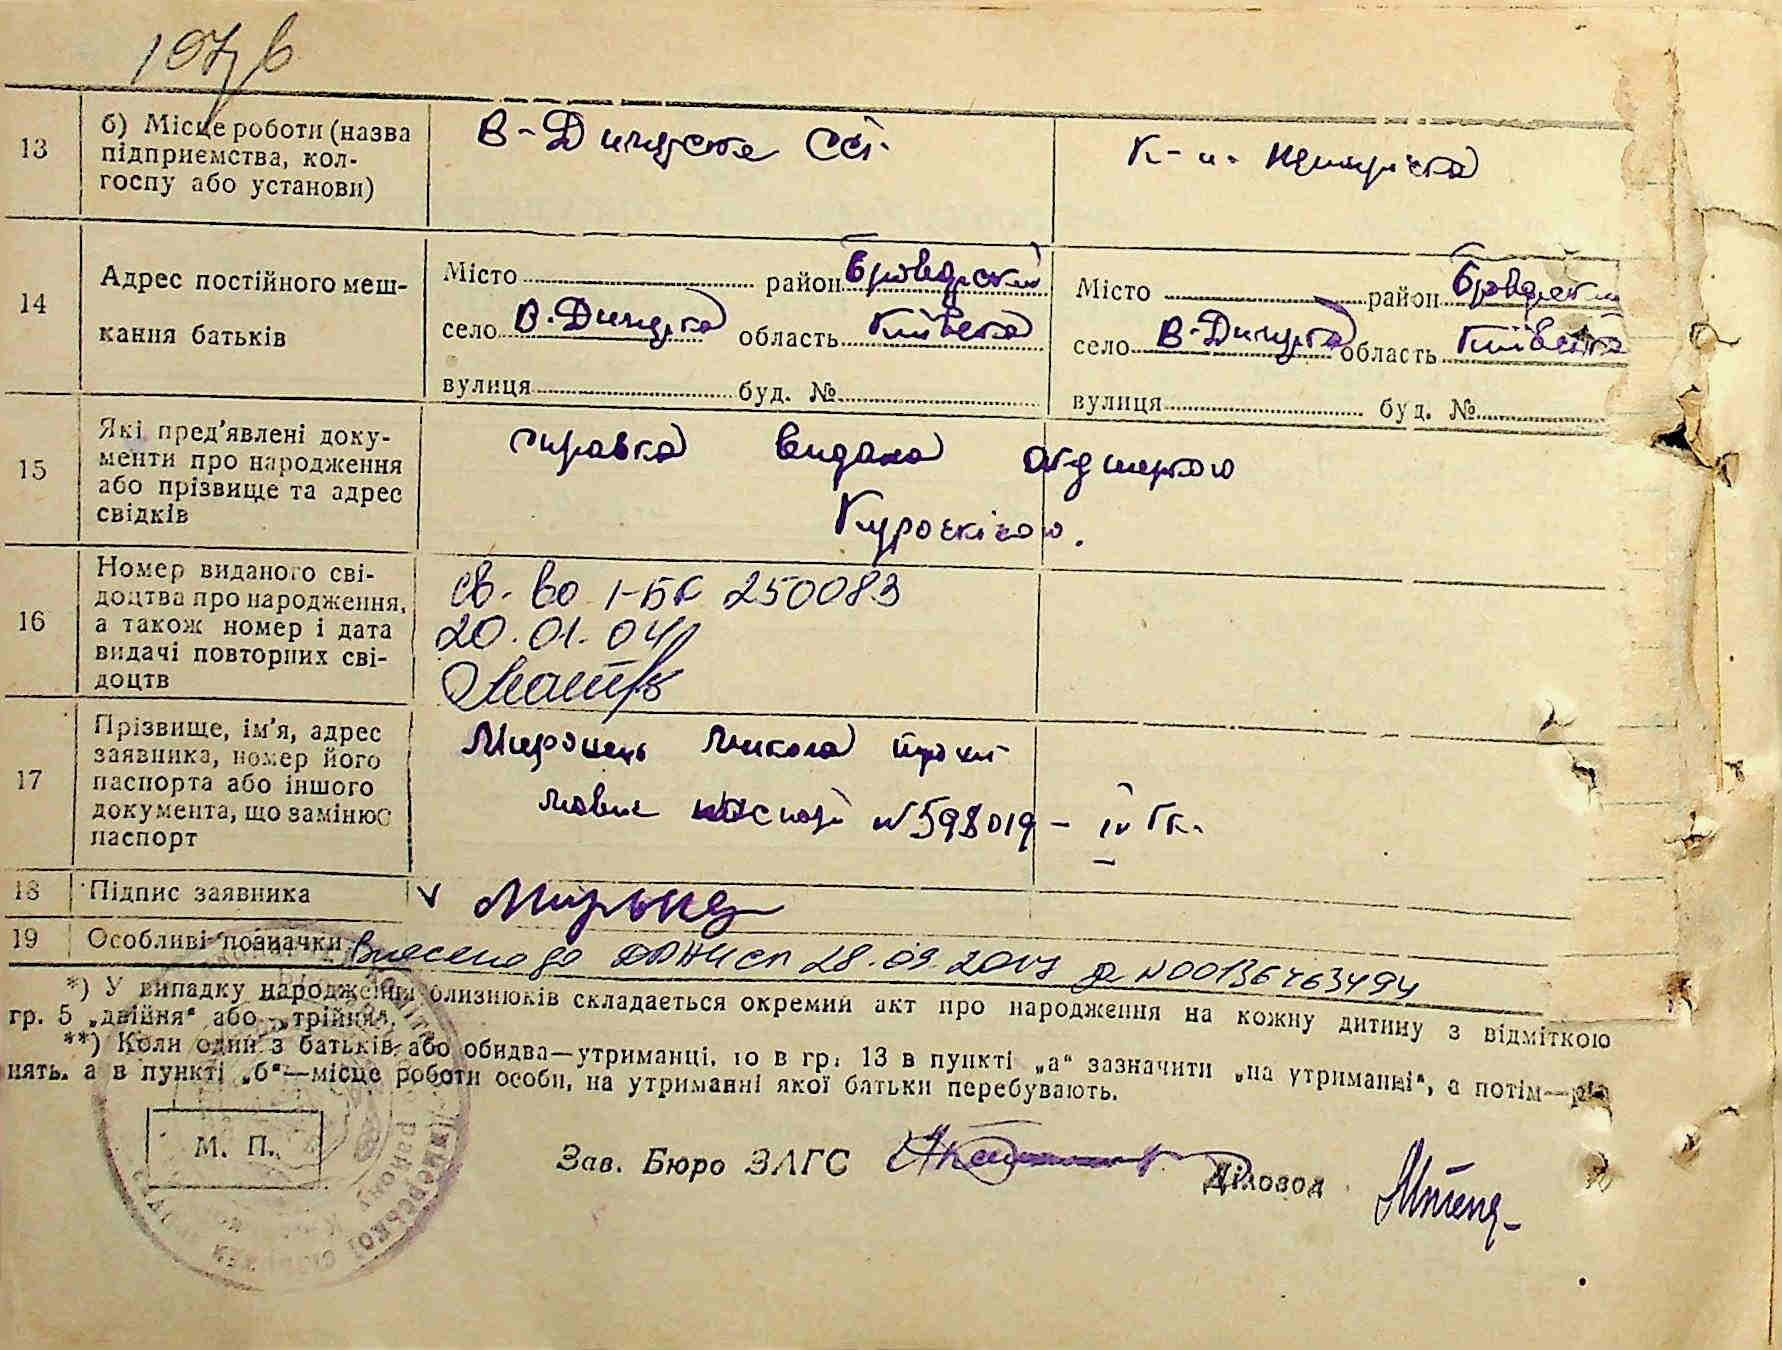 197 в
13
б) Місце роботи (назва
підприємства, кол-
госпу або установи)
В-Димерське ССТ.
14
Адрес постійного меш-
кання батьків
Місто район Броварський
село В-Димерка область Київська
вулиця буд. №
Місто район Броварський
село В-Димерка область Київська
вулиця буд. №
15
Які пред'явлені доку-
менти про народження
або прізвище та адрес
свідків
справка видана акушеркою
16
Номер виданого сві-
доцтва про народження,
а також номер і дата
видачі повторних сві-
доцтв
св-во I-БК 250083
20.01.04
17
Прізвище, ім'я, адрес
заявника, номер його
паспорта або іншого
документа, що замінює
паспорт
Миронець Микола
паспорт №598019 – IV ГК.
18
Підпис заявника
19
Особливі позначки
Внесено до ДРАЦСГ 28.09.2017 за №00136463494
*) У випадку народження близнюків складається окремий акт про народження на кожну дитину з відміткою
гр. 5 „двійня" або „трійня".
**) Коли один з батьків або обидва—утриманці, то в гр. 13 в пункті „а" зазначити „на утриманні", а потім—
нять, а в пункті „б"—місце роботи особи, на утриманні якої батьки перебувають.
М. П.
Зав. Бюро ЗАГС
Діловод